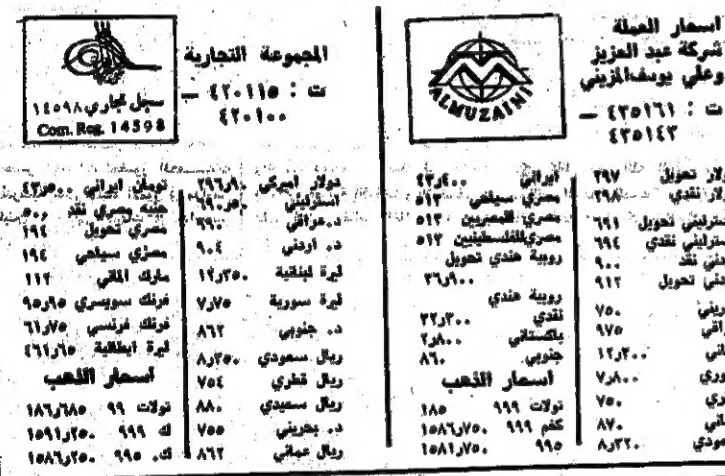 أسعار العملة
شركة عبد العزيز
وعلي يوسف المزيني
ت : ٤٣٥١٦١ –
٤٣٥١٤٣
ALMUZAINI
دولار تحويل ٢٩٧
دولار نقدي ٢٩٨
استرليني تحويل ٦٩١
استرليني نقدي ٦٩٤
نقد ٩٠٠
تحويل ٩١٢
٧٥٠
٩٧٥
١٢٫٢٠٠
٧٫٨٠٠
٧٥٠
٨٧٠
٨٫٢٢٠
ايراني ٤٣٫٤٠٠
مصري سياحي ٥١٣
مصري للمصريين ٥١٣
مصري للفلسطينيين ٥١٢
روبية هندي تحويل
٣٦٫٩٠٠
روبية هندي
نقدي ٣٢٫٣٠٠
باكستاني ٢٫٨٠٠
جنوبي ٨٦٠
أسعار الذهب
تولات ٩٩٩ ١٨٥
كغم ٩٩٩ ١٥٨٦٫٧٥٠
٩٩٥ ١٥٨١٫٧٥٠
المجموعة التجارية
ت : ٤٢٠١١٥ –
٤٢٠١٠٠
سجل تجاري ١٤٥٩٨
Com. Reg. 14598
دولار أميركي ٢٩٦٫٩٠
استرليني ٦٩٠٫٥٠
د. عراقي ٦٩٠
د. أردني ٩٠٤
ليرة لبنانية ١٢٫٢٥٠
ليرة سورية ٧٫٧٥
د. جنوبي ٨٦٢
ريال سعودي ٨٫٢٥٠
ريال قطري ٧٥٤
ريال سعيدي ٨٨٠
د. بحريني ٧٥٥
ريال عماني ٨٦٢
تومان ايراني ٤٣٫٥٠٠
جنيه مصري نقد ٥٠٠
مصري تحويل ١٩٤
مصري سياحي ١٩٤
مارك الماني ١١٢
فرنك سويسري ٩٥٫٩٥
فرنك فرنسي ٦١٫٧٥
ليرة ايطالية ٤٦١٫٦٥
أسعار الذهب
تولات ٩٩ ١٨٦٫٦٨٥
ك ٩٩٩ ١٥٩١٫٢٥٠
ك. ٩٩٥ ١٥٨٦٫٢٥٠